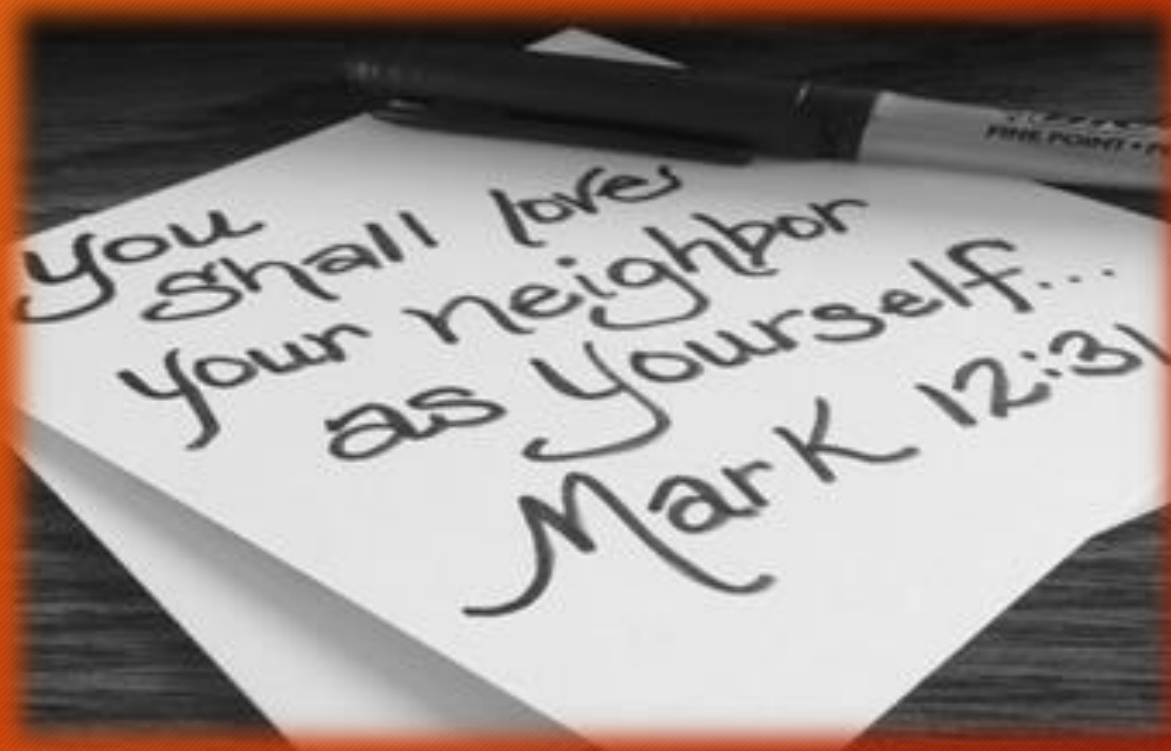 FINE POINT •
you
shall love
your neighbor
as yourself...
Mark 12:31